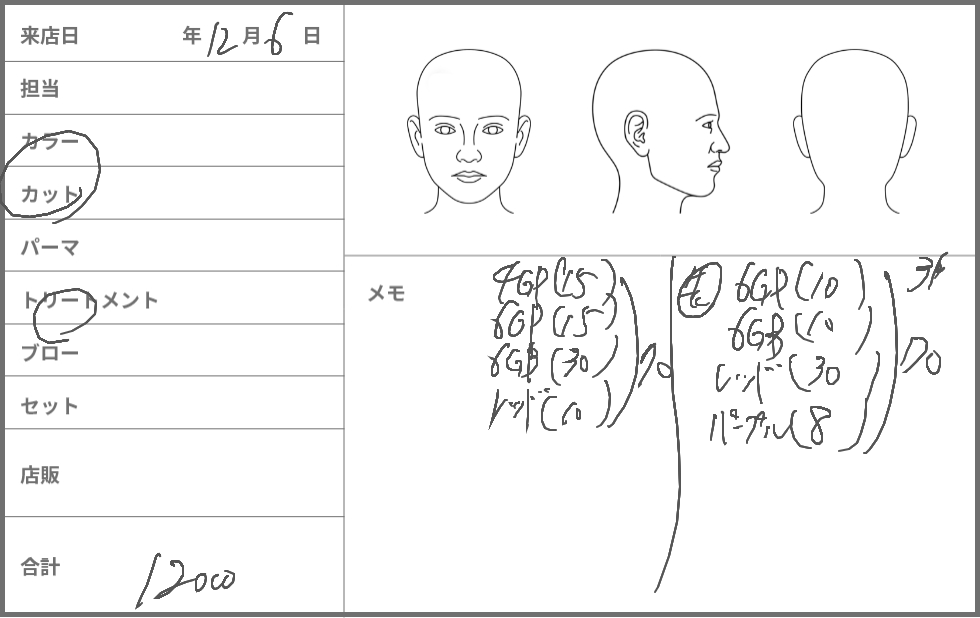 来店日 年12月6日
担当
カラー
カット
パーマ
トリートメント
ブロー
セット
店販
合計 12000
メモ
4GP(15)
6GP(15)
6GB(30)
レッド(10)
70
6GP(10)
6GB(10)
レッド(30
パープル(8)
70